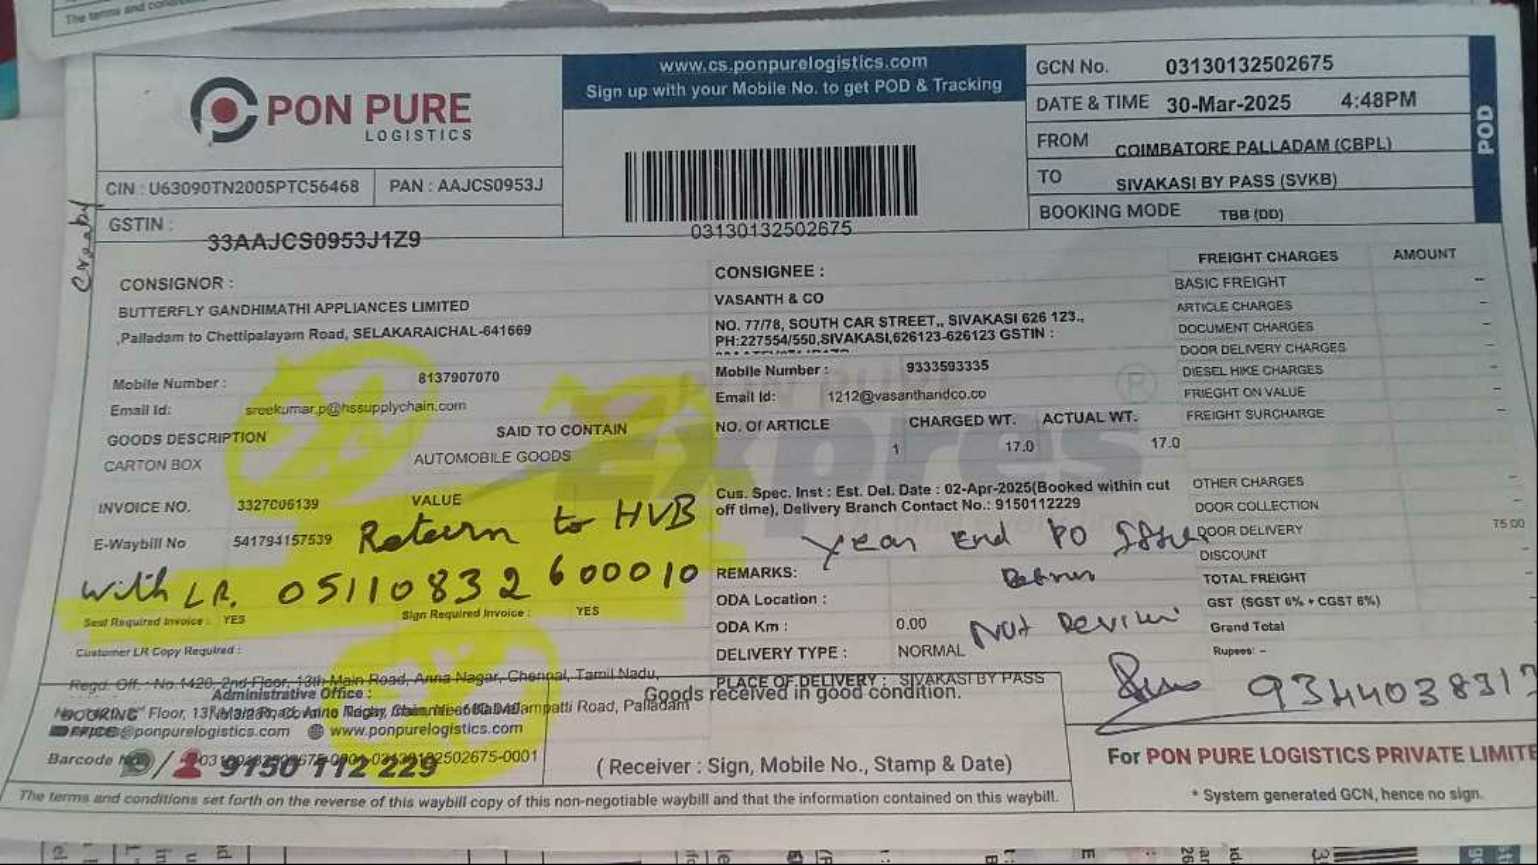 The terms and
PON PURE
LOGISTICS
www.cs.ponpurelogistics.com
Sign up with your Mobile No. to get POD & Tracking
GCN No. 03130132502675
DATE & TIME 30-Mar-2025 4:48PM
FROM COIMBATORE PALLADAM (CBPL)
TO SIVAKASI BY PASS (SVKB)
BOOKING MODE TBB (DD)
POD
CIN : U63090TN2005PTC56468 PAN : AAJCS0953J
GSTIN : 33AAJCS0953J1Z9
03130132502675
CONSIGNOR :
BUTTERFLY GANDHIMATHI APPLIANCES LIMITED
,Palladam to Chettipalayam Road, SELAKARAICHAL-641669
Mobile Number : 8137907070
Email Id: sreekumar.p@hssupplychain.com
GOODS DESCRIPTION SAID TO CONTAIN
CARTON BOX AUTOMOBILE GOODS
INVOICE NO. 3327006139 VALUE
E-Waybill No 541794157539
Return to HVB
with LR. 05110832600010
Seal Required Invoice : YES Sign Required Invoice : YES
Customer LR Copy Required :
CONSIGNEE :
VASANTH & CO
NO. 77/78, SOUTH CAR STREET,, SIVAKASI 626 123.,
PH:227554/550,SIVAKASI,626123-626123 GSTIN :
Mobile Number : 9333593335
Email Id: 1212@vasanthandco.co
NO. Of ARTICLE CHARGED WT. ACTUAL WT.
1 17.0 17.0
Expres
Cus. Spec. Inst : Est. Del. Date : 02-Apr-2025(Booked within cut
off time), Delivery Branch Contact No.: 9150112229
Year End PO
REMARKS:
ODA Location :
ODA Km : 0.00
Not
DELIVERY TYPE : NORMAL
PLACE OF DELIVERY : SIVAKASI BY PASS
FREIGHT CHARGES AMOUNT
BASIC FREIGHT –
ARTICLE CHARGES –
DOCUMENT CHARGES –
DOOR DELIVERY CHARGES –
DIESEL HIKE CHARGES –
FRIEGHT ON VALUE –
FREIGHT SURCHARGE –
OTHER CHARGES –
DOOR COLLECTION –
DOOR DELIVERY 75.00
DISCOUNT –
TOTAL FREIGHT –
GST (SGST 6% + CGST 6%) –
Grand Total
Rupees: –
Regd. Off. : No.1420, 2nd Floor, 13th Main Road, Anna Nagar, Chennai, Tamil Nadu,
Administrative Office :
BOOKING
Palladam
@ponpurelogistics.com www.ponpurelogistics.com
Barcode
9150 112 229
Goods received in good condition.
(Receiver : Sign, Mobile No., Stamp & Date)
For PON PURE LOGISTICS PRIVATE LIMITE
* System generated GCN, hence no sign.
The terms and conditions set forth on the reverse of this waybill copy of this non-negotiable waybill and that the information contained on this waybill.